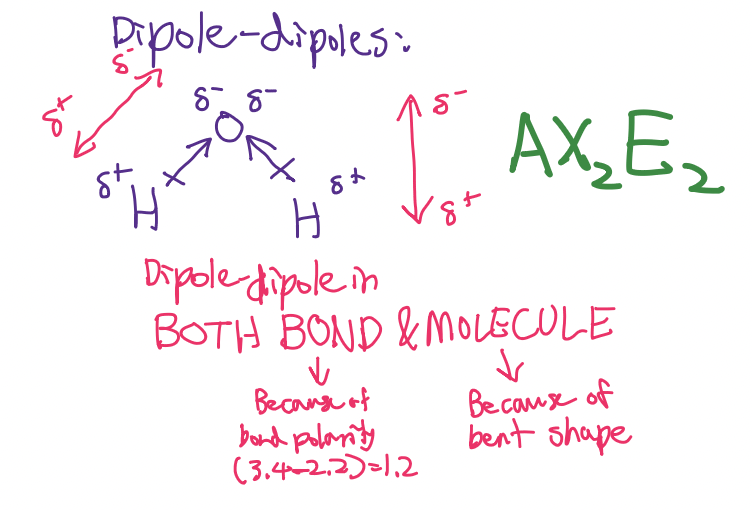 Dipole-dipoles:
δ⁻
δ⁺
δ⁻ δ⁻
O
δ⁺
H
H
δ⁺
δ⁻
δ⁺
AX₂E₂
Dipole-dipole in
BOTH BOND & MOLECULE
Because of
bond polarity
(3.4-2.2)=1.2
Because of
bent shape